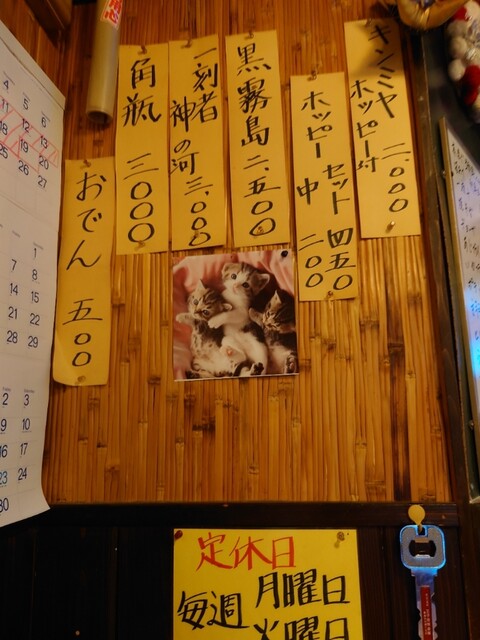 キンミヤ
ホッピー付
二、〇〇〇
ホッピー
セット 四五〇
中 二〇〇
黒霧島 二、五〇〇
一刻者
神の河 三、〇〇〇
角瓶 三〇〇〇
おでん 五〇〇
4
5 6
11 12 13
18 19 20
25 26 27
1
7 8
14 15
21 22
28 29
2 3
9 10
16 17
23 24
30
定休日
毎週 月曜日
火曜日